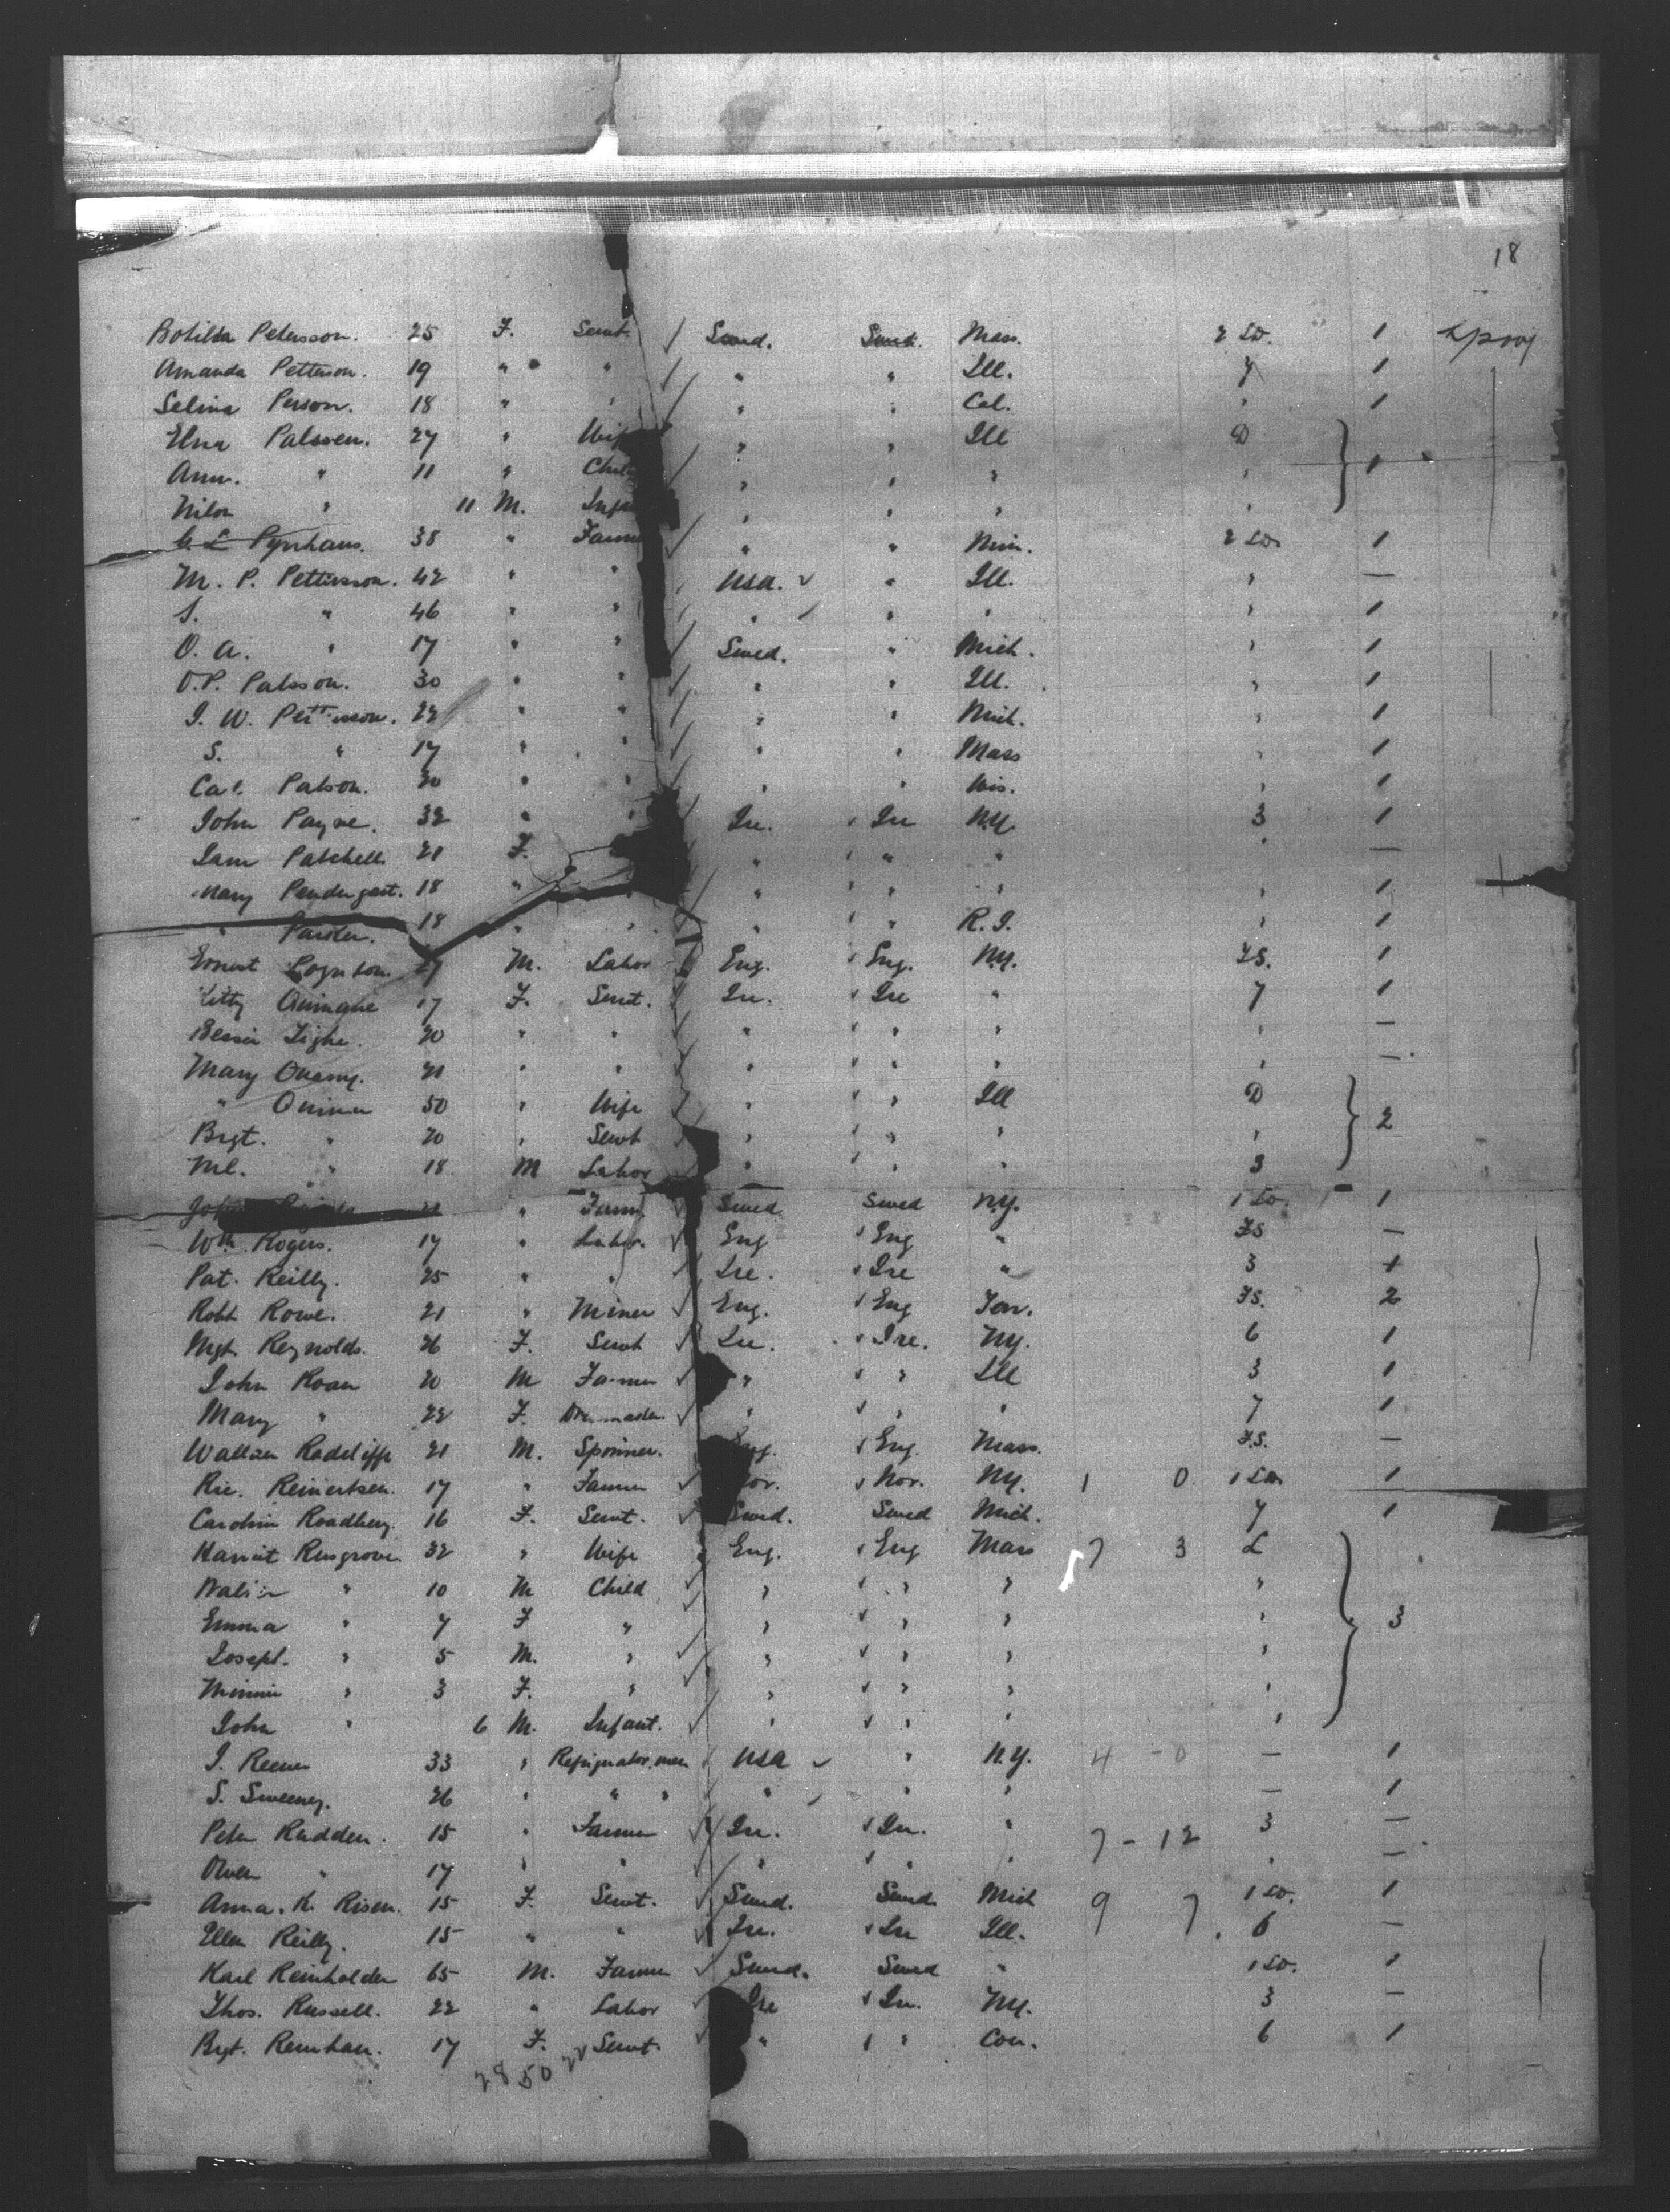 18
Botilda Petersson. 25 F. Servt. / Swed. Swed. Mass. 2 SD. 1
Amanda Petterson. 19 " " / " " Ill. 7 1
Selina Person. 18 " " / " " Cal. " 1
Elna Palsson. 27 " Wife / " " Ill D
Ann. " 11 " Child / " " " " } 1
Nilon " 11 M. Infa " " " "
Pyrhans. 38 " Farme / " " Min. 2 SD. 1
M. P. Pettersson. 42 " " USA. ✓ " Ill. " —
S. " 46 " " " / " " " 1
O. A. " 17 " " / Swed. " Mich. " 1
O.P. Palsson. 30 " " / " " Ill. " 1
J. W. Pettersson. 22 " " / " " Mich. " 1
S. " 17 " " / " " Mass " 1
Palson. 20 " " / " " Wis. " 1
John Payne. 32 " " / Ire. Ire N.Y. 3 1
Patchell 21 F. " " " " —
Mary Pendergast. 18 " / " " " " 1
" Parker. 18 " " / " " R.I. " 1
Ernest M. Labor / Eng. Eng. N.Y. FS. 1
17 F. Servt. / Ire. Ire " 7 1
Bessie Tighe. 20 " " / " " " " —
Mary 21 " " / " " " " —
" Quinn 50 " Wife / " " Ill D
Brgt. " 20 " Servt / " " " " } 2
Ml. " 18 M Labor / " " " 3
" Farm ✓ Swed Swed N.Y. 1 SD. 1
Wm Rogers. 17 " Labor. ✓ Eng Eng " FS —
Pat. Reilly. 25 " " / Ire. Ire " 3 1
Robt Rowe. 21 " Miner ✓ Eng. Eng FS. 2
Mgt. Reynolds. 26 F. Servt ✓ Ire. Ire. N.Y. 6 1
John Roan 20 M Farmer ✓ " " Ill 3 1
Mary " 22 F. Dressmaker. ✓ " " " 7 1
Radcliffe 21 M. Spinner. Eng. Eng. Mass. F.S. —
Ric. Reinertsen. 17 " Farmer ✓ Nor. Nor. N.Y. 1 0 1 SD. 1
Carolin Roadberg. 16 F. Servt. ✓ Swed. Swed Mich. 7 1
Harriet Rusgrove 32 " Wife Eng. Eng Mass 7 3 L
" 10 M Child ✓ " " " "
Emma " 7 F " / " " " " } 3
Joseph " 5 M. " ✓ " " " "
Minnie " 3 F. " ✓ " " " "
John " 6 M. Infant. ✓ " " " "
J. Reeves 33 " Refrigerator men / USA ✓ " N.Y. 4 - 0 — 1
S. Sweeney. 26 " " " / " / " " — 1
Peter Rudden. 15 " Farmer / Ire. Ire. " 7 - 12 3 —
Owen " 17 " " ✓ " " " " —
Anna. K. Risen. 15 F. Servt. ✓ Swed. Swed. Mich 9 7 1 SD. 1
Ellen Reilly. 15 " " ✓ Ire. Ire Ill. 6 —
Karl Reinholder 65 M. Farmer ✓ Swed. Swed " 1 SD. 1
Thos. Russell. 22 " Labor ✓ Ire Ire. N.Y. 3 —
Brgt. Renehan. 17 F. Servt. ✓ " " Con. 6 1
28 50 22